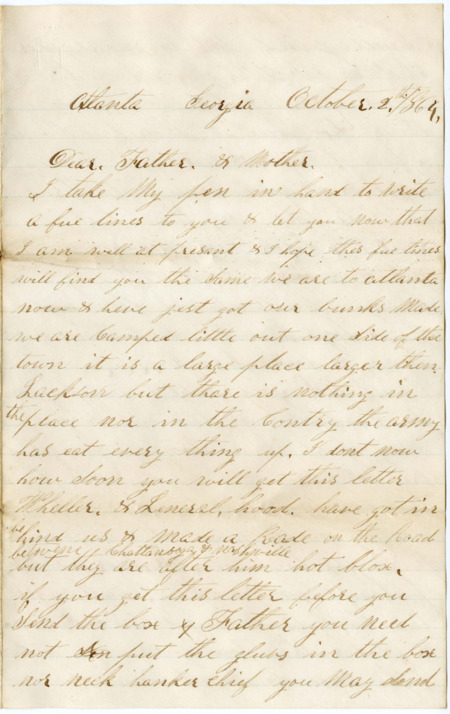 Atlanta Georgia October. 2th/864,
Dear. Father. & Mother.
I take My pen in hand to write
a fue lines to you & let you now that
I am well at present & I hope this fue lines
will find you the same we are to atlanta
now & have jest got our bunks Made
we are Camped little out one side of the
town it is a large place larger then
Jackson but thare is nothing in
the place nor in the Contry the army
has eat every thing up. I dont now
how soon you will get this letter
Wheller. & General. hood. have got in
be hind us & Made a Rade on the Road
bewene Chattanooga & Nashville
but they are after him hot blox.
if you get this letter before you
Send the box y Father you need
not put the gluvs in the box
nor neck hanker chief you May send